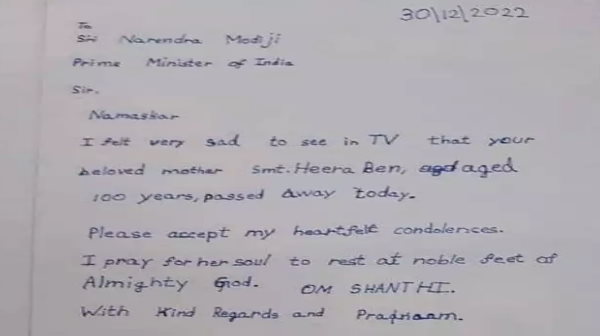 30/12/2022
To
Sri Narendra Modiji
Prime Minister of India
Sir.
Namaskar
I felt very sad to see in TV that your
beloved mother Smt. Heera Ben, aged
100 years, passed away today.
Please accept my heartfelt condolences.
I pray for her soul to rest at noble feet of
Almighty God. OM SHANTHI.
With Kind Regards and Pradnaam.